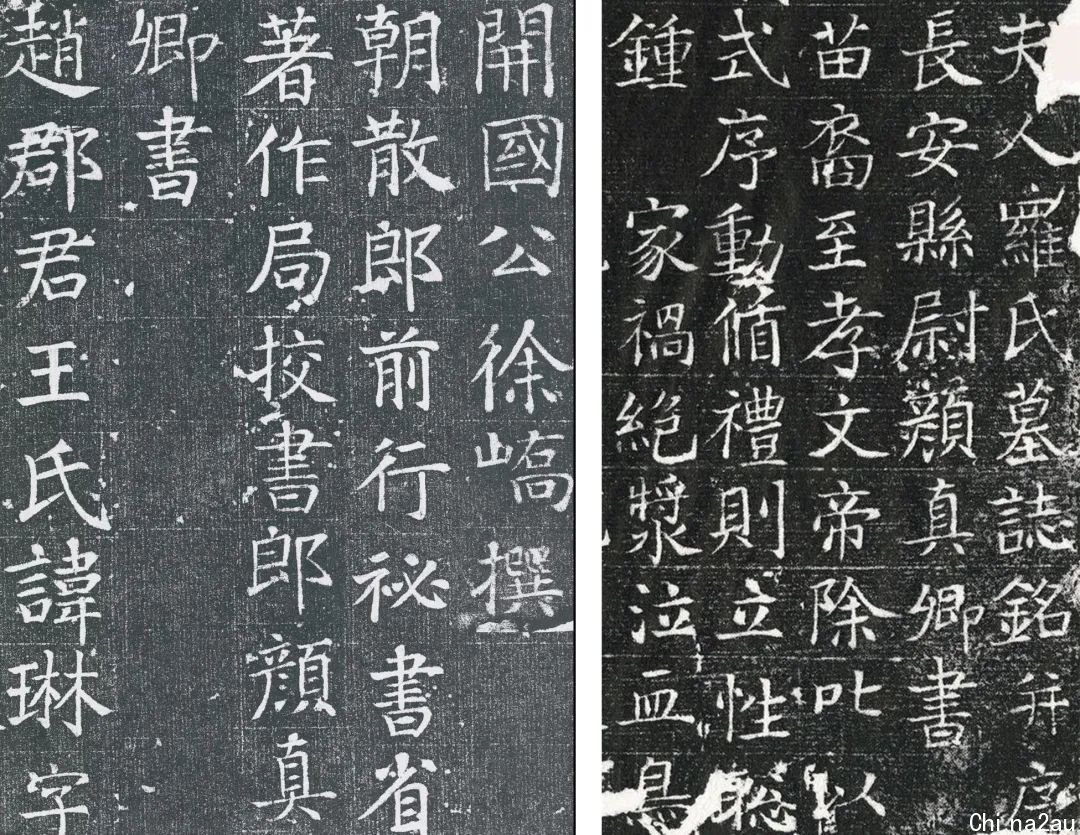 開國公徐嶠撰
朝散郎前行祕書省
著作局挍書郎顏真
卿書
趙郡君王氏諱琳字
夫人羅氏墓誌銘并序
長安縣尉顏真卿書
苗裔至孝文帝除叱以
式序動循禮則立性聡
鍾 家禍絕漿泣血
China2au